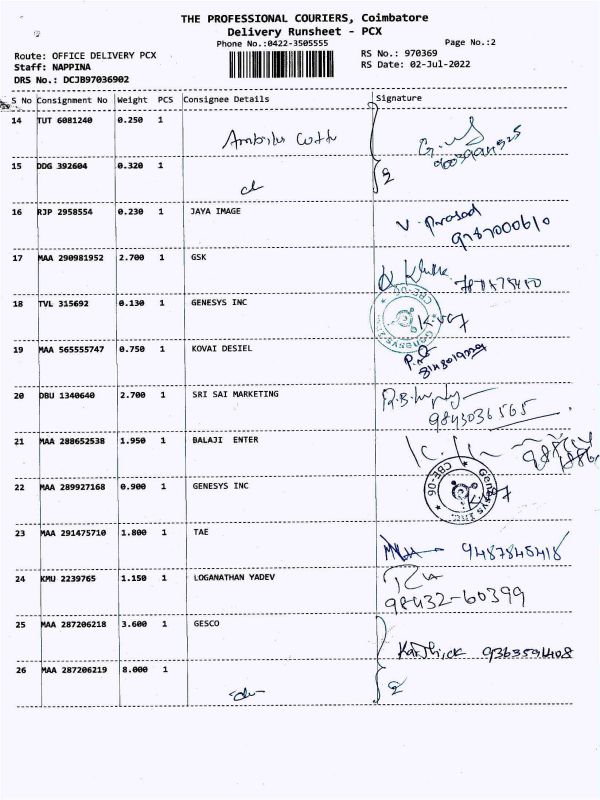 THE PROFESSIONAL COURIERS, Coimbatore
Delivery Runsheet - PCX
Phone No.:0422-3505555 Page No.:2
Route: OFFICE DELIVERY PCX RS No.: 970369
Staff: NAPPINA RS Date: 02-Jul-2022
DRS No.: DCJB97036902
S No Consignment No Weight PCS Consignee Details Signature
14 TUT 6081240 0.250 1
15 DDG 392604 0.320 1
16 RJP 2958554 0.230 1 JAYA IMAGE V. Prasad
9787000610
17 MAA 290981952 2.700 1 GSK
18 TVL 315692 0.130 1 GENESYS INC
19 MAA 565555747 0.750 1 KOVAI DESIEL
20 DBU 1340640 2.700 1 SRI SAI MARKETING
9843036565
21 MAA 288652538 1.950 1 BALAJI ENTER
22 MAA 289927168 0.900 1 GENESYS INC
CBE-06 Genesys Inc
23 MAA 291475710 1.800 1 TAE
9487845418
24 KMU 2239765 1.150 1 LOGANATHAN YADEV
98432-60399
25 MAA 287206218 3.600 1 GESCO
Karthick 9363591408
26 MAA 287206219 8.000 1